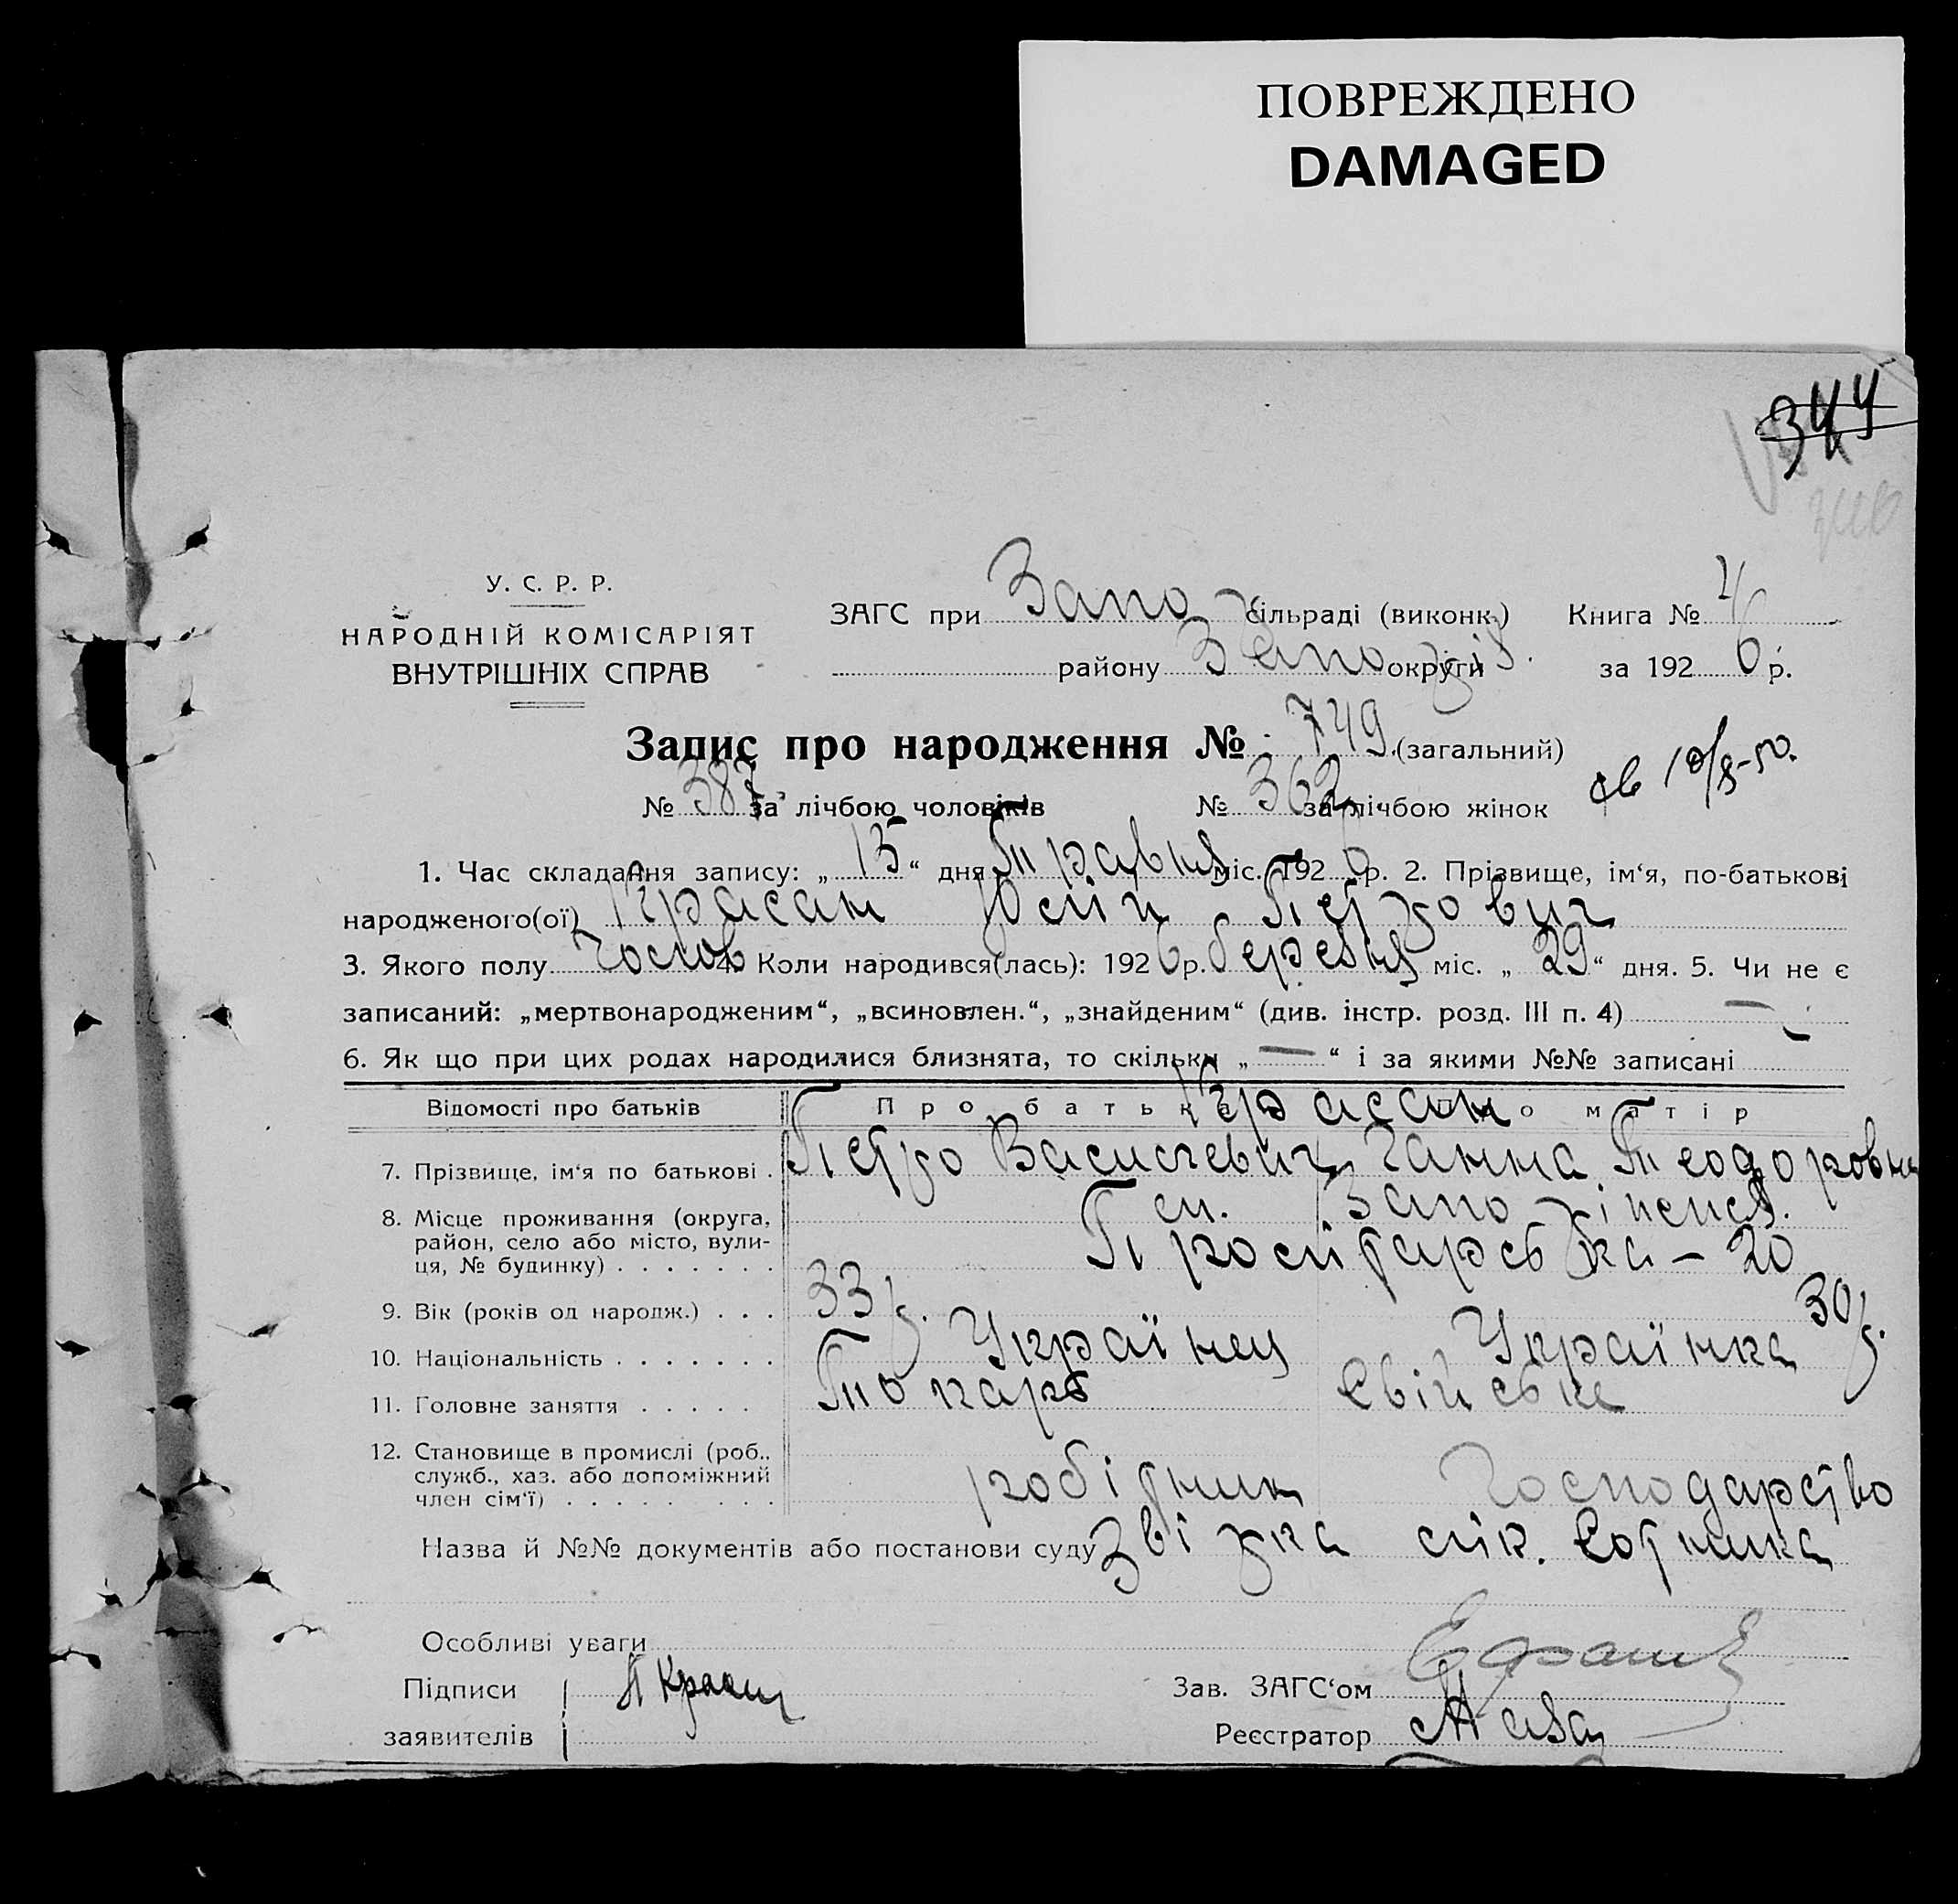 ПОВРЕЖДЕНО
DAMAGED
344
У. С. Р. Р.
НАРОДНІЙ КОМІСАРІЯТ
ВНУТРІШНІХ СПРАВ
ЗАГС при Запо сільраді (виконк.) Книга №
району Запо округи за 192 6 р.
Запис про народження № 749 (загальний)
№ 387 за лічбою чоловіків № 362 за лічбою жінок
1. Час складання запису: „ 15 “ дня Травня міс. 192 6 р. 2. Прізвище, ім‘я, по-батькові
народженого(ої) Красан Юхим Петрович
3. Якого полу 4. Коли народився(лась): 192 6 р. березня міс. „ 29 “ дня. 5. Чи не є
записаний: „мертвонародженим“, „всиновлен.“, „знайденим“ (див. інстр. розд. III п. 4) —
6. Як що при цих родах народилися близнята, то скільки „ — “ і за якими №№ записані
Відомості про батьків Про батька Про матір
Красан
7. Прізвище, ім‘я по батькові . Петро Васильевич Ганна Теодоровна
8. Місце проживання (округа,
район, село або місто, вули-
ця, № будинку) . . . . . . .
— 20
9. Вік (років од народж.) . . . 33 р. 30 р.
10. Національність . . . . . . . Українец Українка
11. Головне заняття . . . . . Токарь Свійське
12. Становище в промислі (роб.,
служб., хаз. або допоміжний
член сім‘ї) . . . . . . . . . робітник Господарство
Назва й №№ документів або постанови суду Звістка лік. Сотника
Особливі уваги
Підписи П Красан Зав. ЗАГС‘ом
заявителів Реєстратор